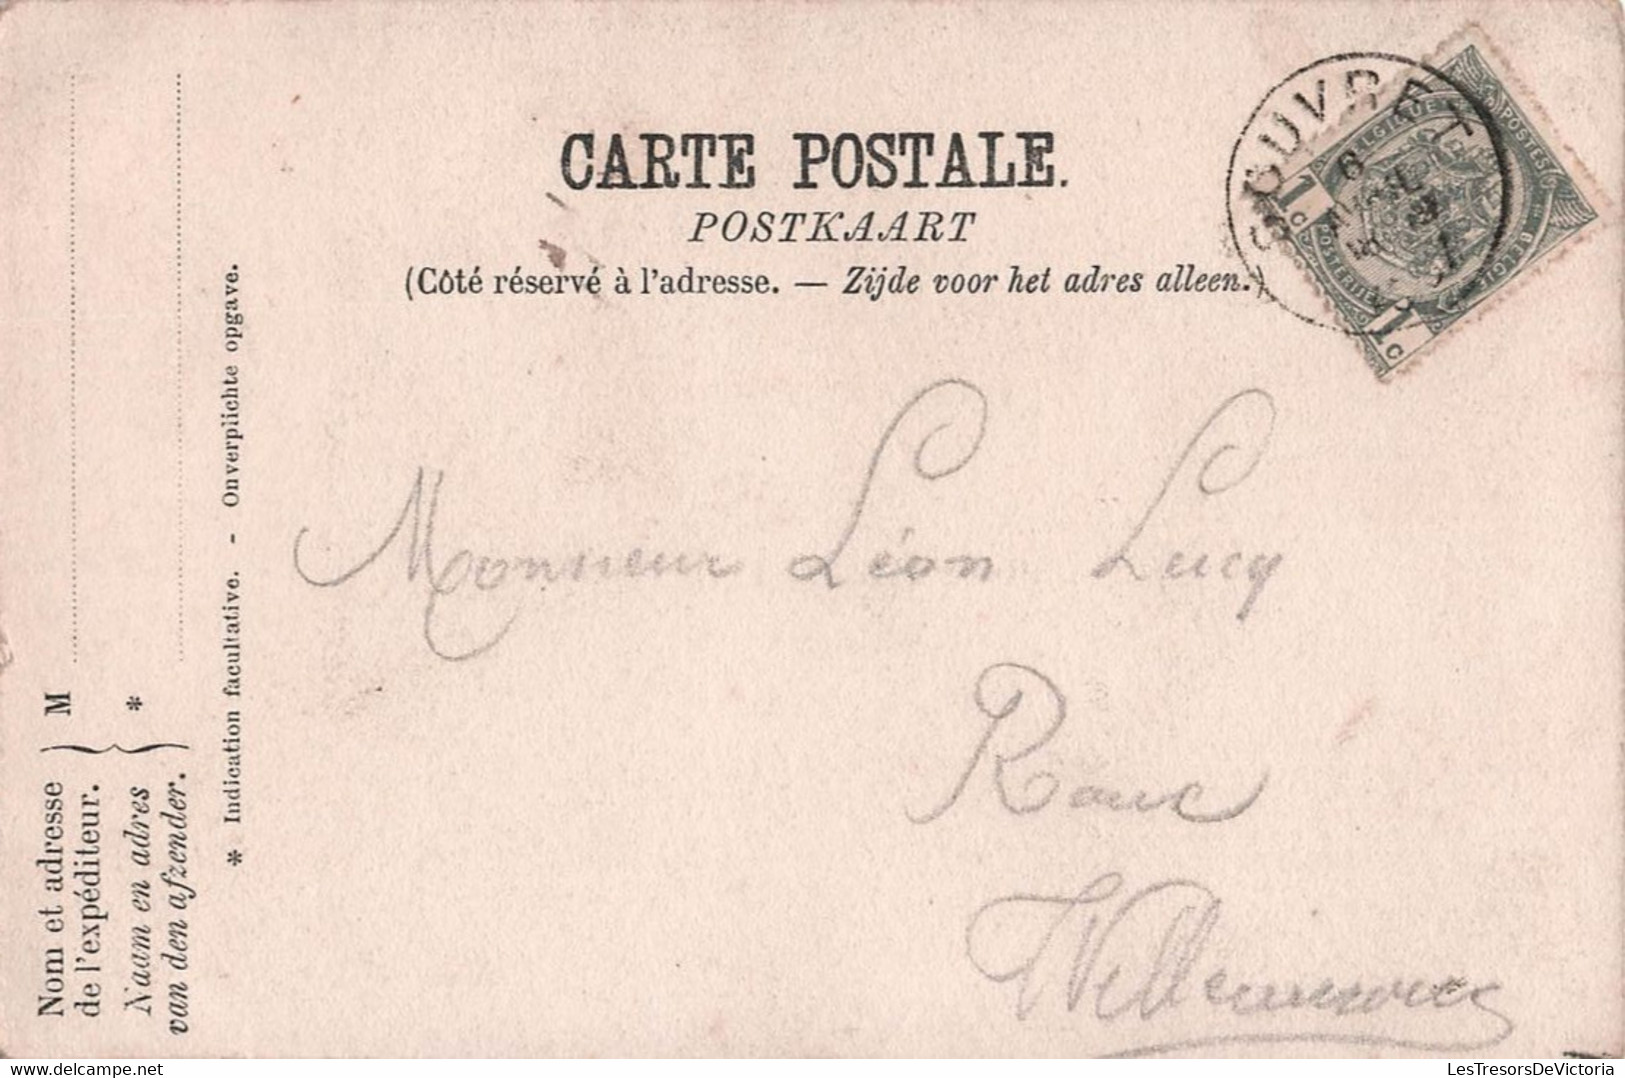 CARTE POSTALE.
POSTKAART
(Côté réservé à l'adresse. — Zijde voor het adres alleen.)
SOUVRET
6
1c
1c
BELGIQUE
POSTES
POSTERIJEN
BELGIE
Monsieur Léon Lucq
Nom et adresse
de l'expéditeur.
M
Naam en adres
van den afzender.
*
* Indication facultative. - Onverplichte opgave.
LesTresorsDeVictoria
www.delcampe.net